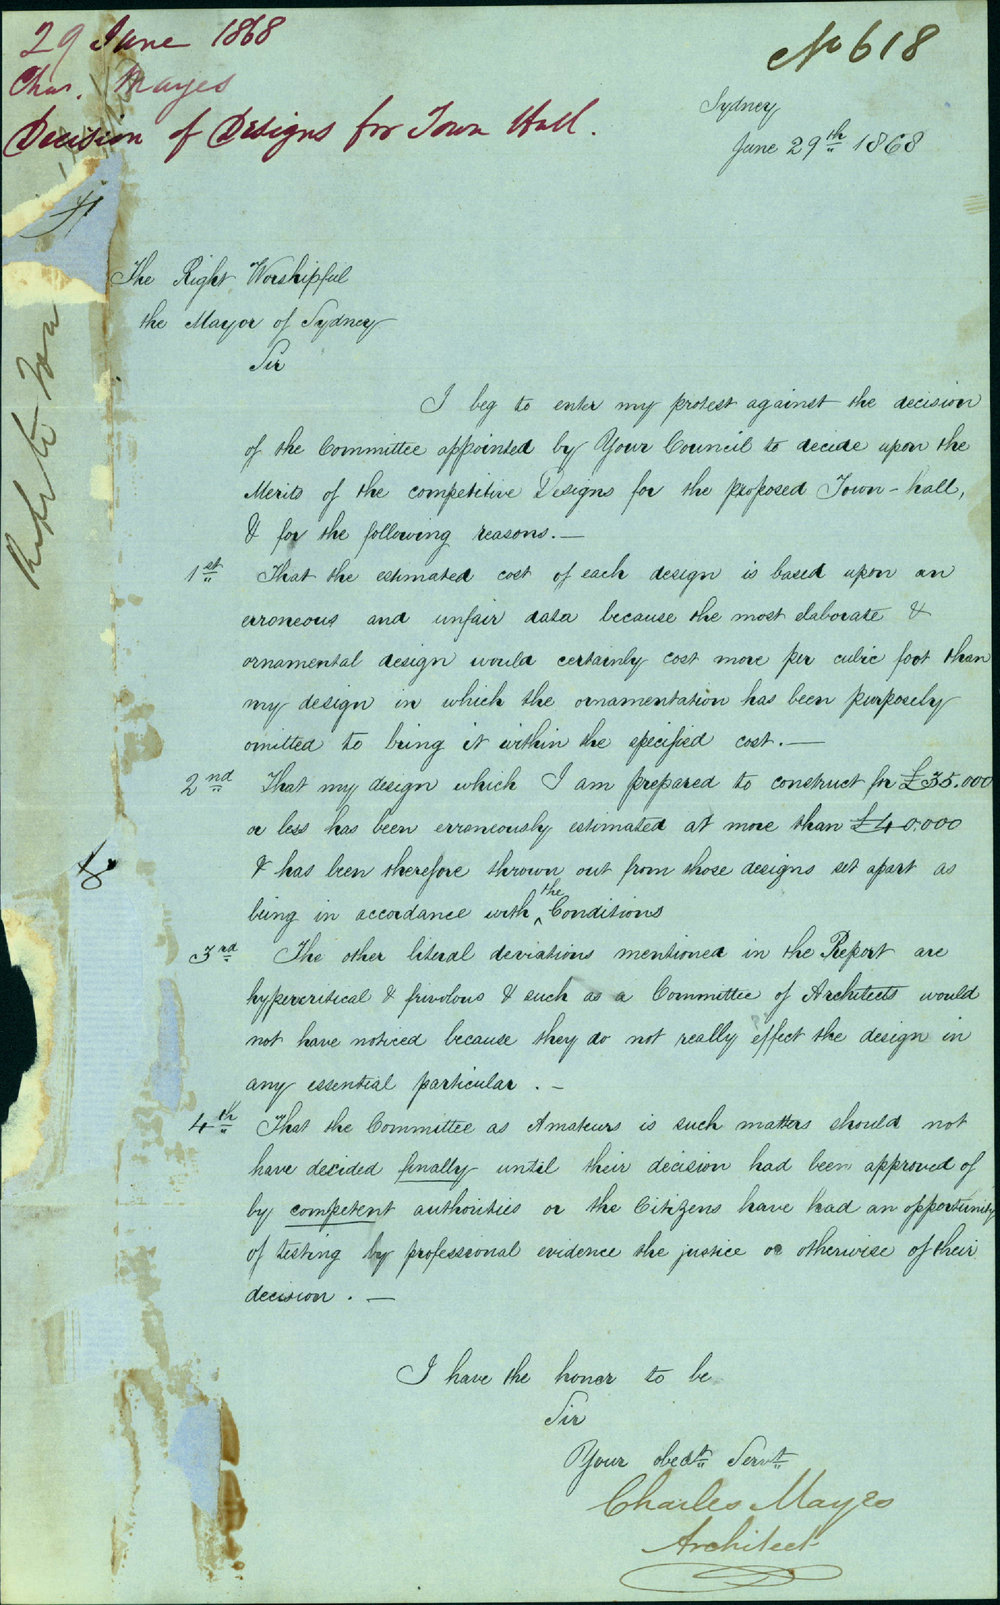 29 June 1868
Chas. Mayes
Decision of Designs for Town Hall.
No 618
Sydney
June 29th 1868
The Right Worshipful
the Mayor of Sydney
Sir
I beg to enter my protest against the decision
of the Committee appointed by Your Council to decide upon the
Merits of the competitive Designs for the proposed Town-hall,
& for the following reasons.—
1st That the estimated cost of each design is based upon an
erroneous and unfair data because the most elaborate &
ornamental design would certainly cost more per cubic foot than
my design in which the ornamentation has been purposely
omitted to bring it within the specified cost.—
2nd That my design which I am prepared to construct for £35.000
or less has been erroneously estimated at more than £40.000
& has been therefore thrown out from those designs set apart as
being in accordance with the Conditions
3rd The other literal deviations mentioned in the Report are
hypercritical & frivolous & such as a Committee of Architects would
not have noticed because they do not really effect the design in
any essential particular . –
4th That the Committee as Amateurs is such matters should not
have decided finally until their decision had been approved of
by competent authorities or the Citizens have had an opportunity
of testing by professional evidence the justice or otherwise of their
decision . —
I have the honor to be
Sir
Your obedt Servt
Charles Mayes
Architect